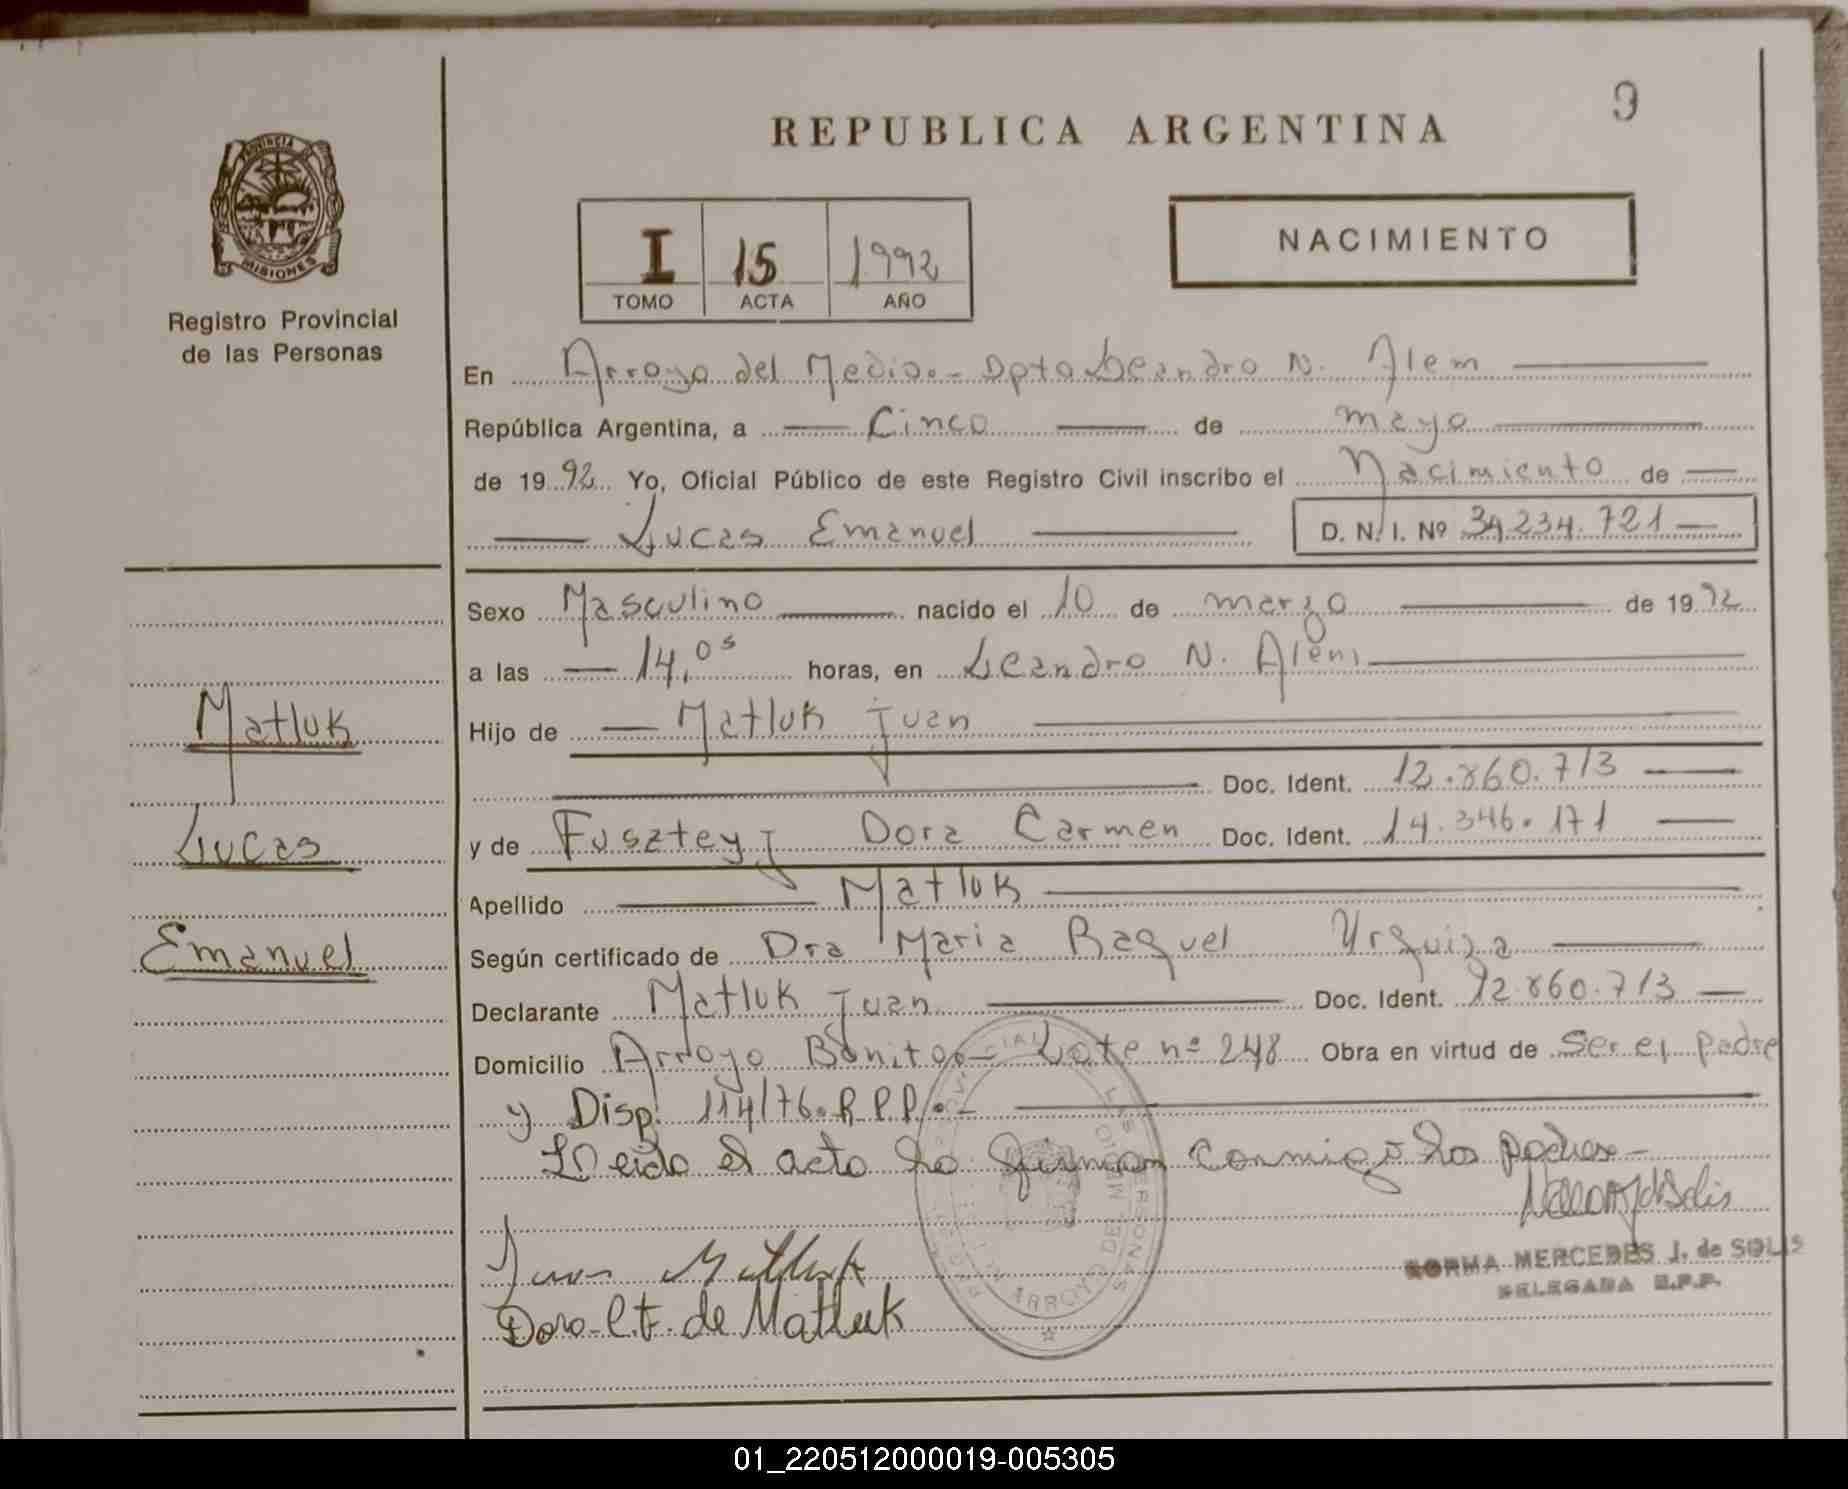 9
REPUBLICA ARGENTINA
PROVINCIA
MISIONES
Registro Provincial
de las Personas
I 15 1992
TOMO ACTA AÑO
NACIMIENTO
En Arroyo del Medio.- Dpto Leandro N. Alem
República Argentina, a Cinco de mayo
de 1992 Yo, Oficial Público de este Registro Civil inscribo el Nacimiento de
Lucas Emanuel D. N. I. Nº 34.234.721
Sexo Masculino nacido el 10 de marzo de 1992
a las 14,05 horas, en Leandro N. Alem
Matluk
Hijo de Matluk Juan
Doc. Ident. 12.860.713
Lucas
y de Fusztey, Dora Carmen Doc. Ident. 14.346.171
Apellido Matluk
Emanuel
Según certificado de Dra Maria Raquel Urquiza
Declarante Matluk Juan Doc. Ident. 12.860.713
Domicilio Arroyo Bonito.- Lote nº 248 Obra en virtud de Ser el padre
y Disp. 114/76.R.P.P.-
Leido el acto lo firman conmigo los padres-
Juan Matluk
Dora C F. de Matluk
NORMA MERCEDES J. de SOLIS
DELEGADA R.P.P.
ARROYO DEL MEDIO
01_220512000019-005305